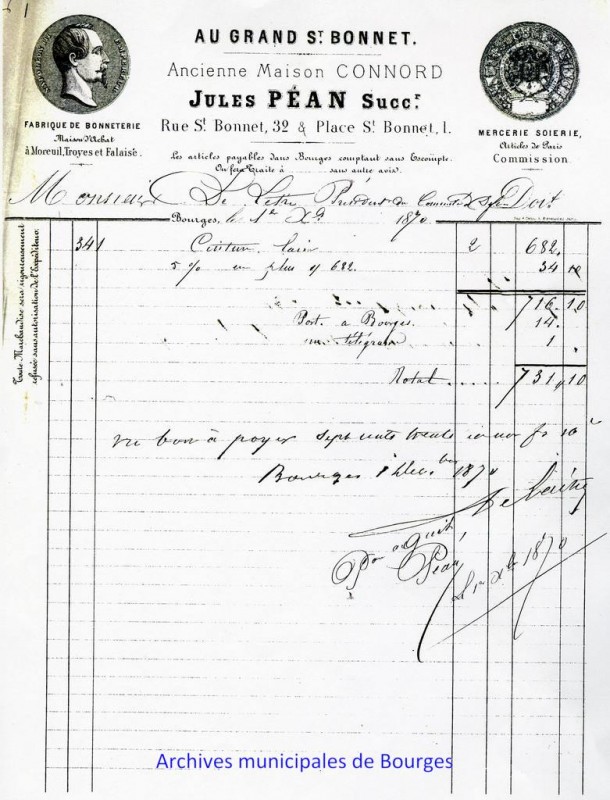 1
AU GRAND St BONNET.
Ancienne Maison CONNORD
JULES PÉAN Succr
Rue St Bonnet, 32 & Place St Bonnet, 1.
FABRIQUE DE BONNETERIE
Maison d'Achat
à Moreuil, Troyes et Falaise.
MERCERIE SOIERIE,
Articles de Paris
Commission.
Les articles payables dans Bourges comptant sans Escompte.
Ou fera Traite à sans autre avis.
Monsieur De Doit
Bourges, le 1er Xbre 1870
Toute Marchandise sera rigoureusement
refusée sans autorisation de l'Expéditeur.
341 2 682.
5 % en plus s/ 682. 34 10
716. 10
Port a Bourges. 14.
un télégram 1
Total 731. 10
vu bon à payer sept cents trente et un fs 10 c
Bourges 1 Decbre 1870
Pour acquit
Péan
le 1er Xbre 1870
Archives municipales de Bourges